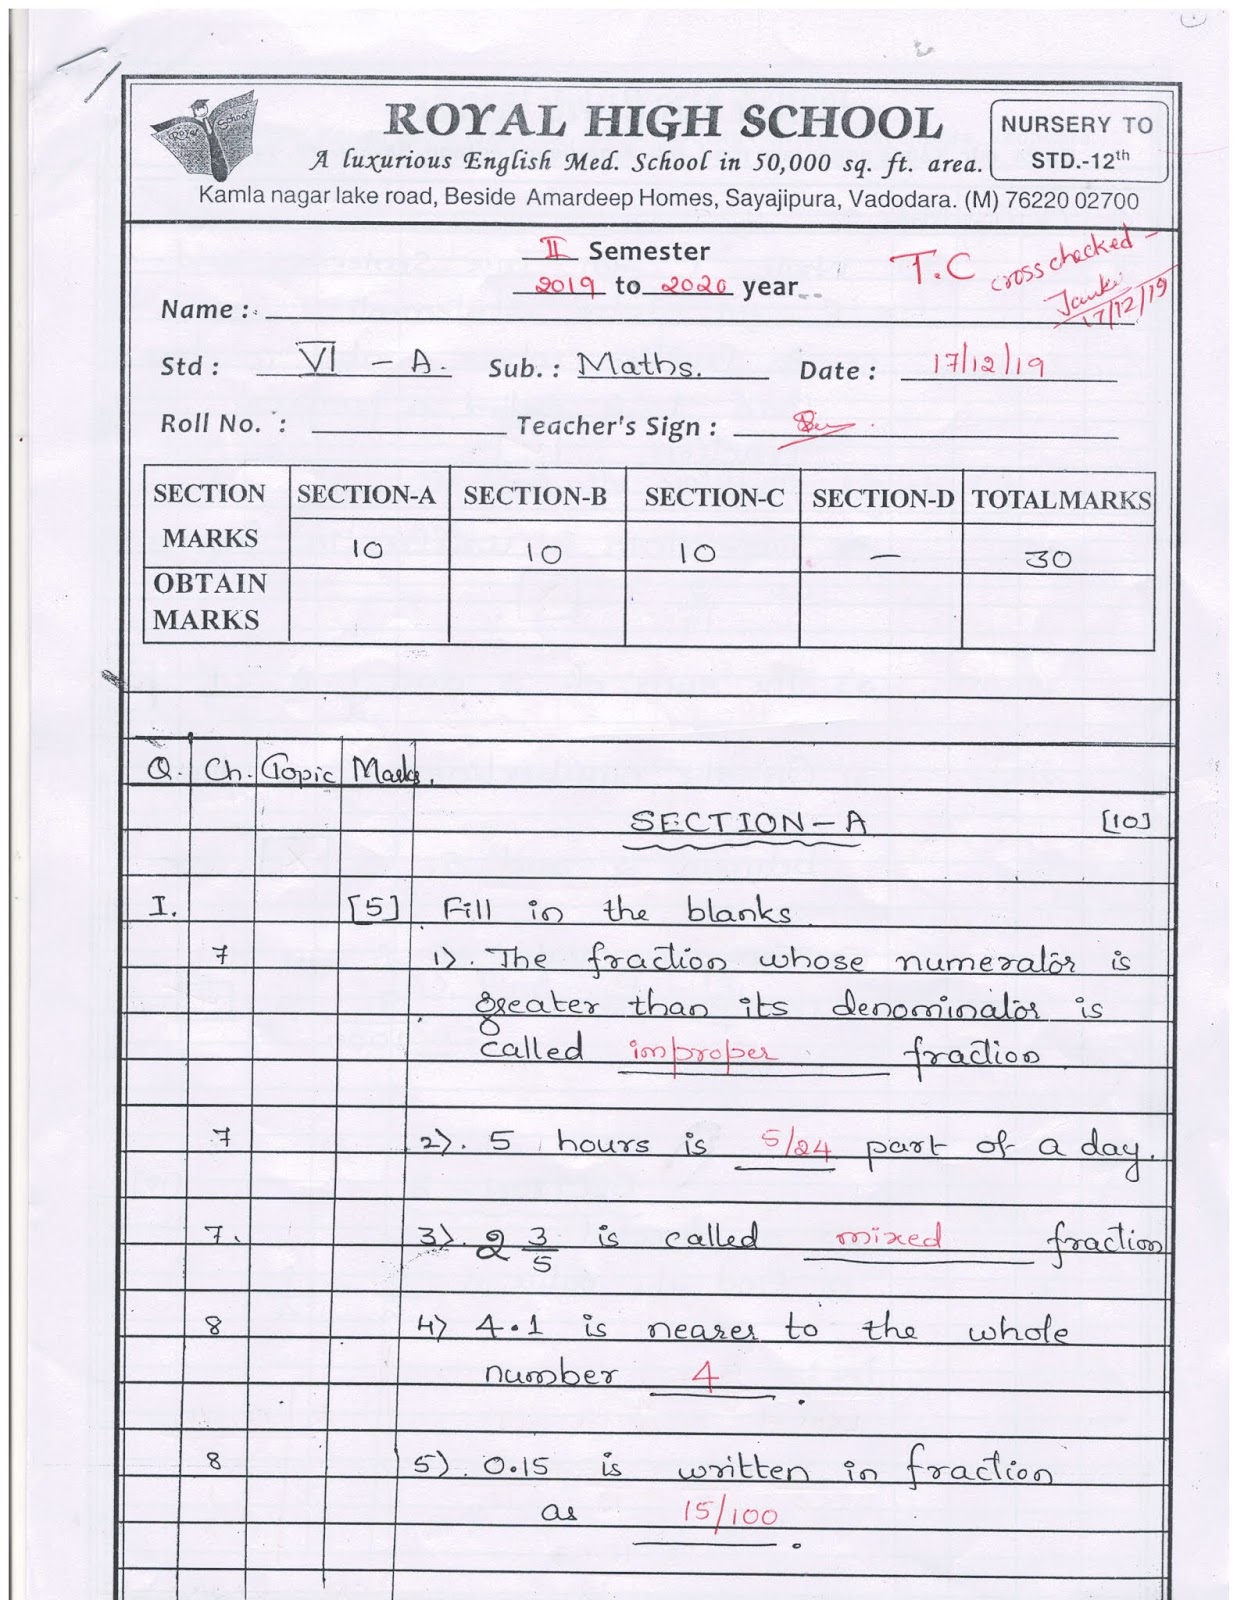 Royal School
ROYAL HIGH SCHOOL
A luxurious English Med. School in 50,000 sq. ft. area.
NURSERY TO
STD.-12th
Kamla nagar lake road, Beside Amardeep Homes, Sayajipura, Vadodara. (M) 76220 02700
II Semester
2019 to 2020 year
T.C cross checked -
17/12/19
Name :
Std : VI - A. Sub. : Maths. Date : 17/12/19
Roll No. : Teacher's Sign :
SECTION SECTION-A SECTION-B SECTION-C SECTION-D TOTAL MARKS
MARKS 10 10 10 — 30
OBTAIN
MARKS
Q. Ch. Topic Marks.
SECTION - A [10]
I. [5] Fill in the blanks
7 1). The fraction whose numerator is
greater than its denominator is
called improper fraction
7 2). 5 hours is 5/24 part of a day.
7. 3). 2 3/5 is called mixed fraction
8 4) 4.1 is nearer to the whole
number 4 .
8 5). 0.15 is written in fraction
as 15/100 .